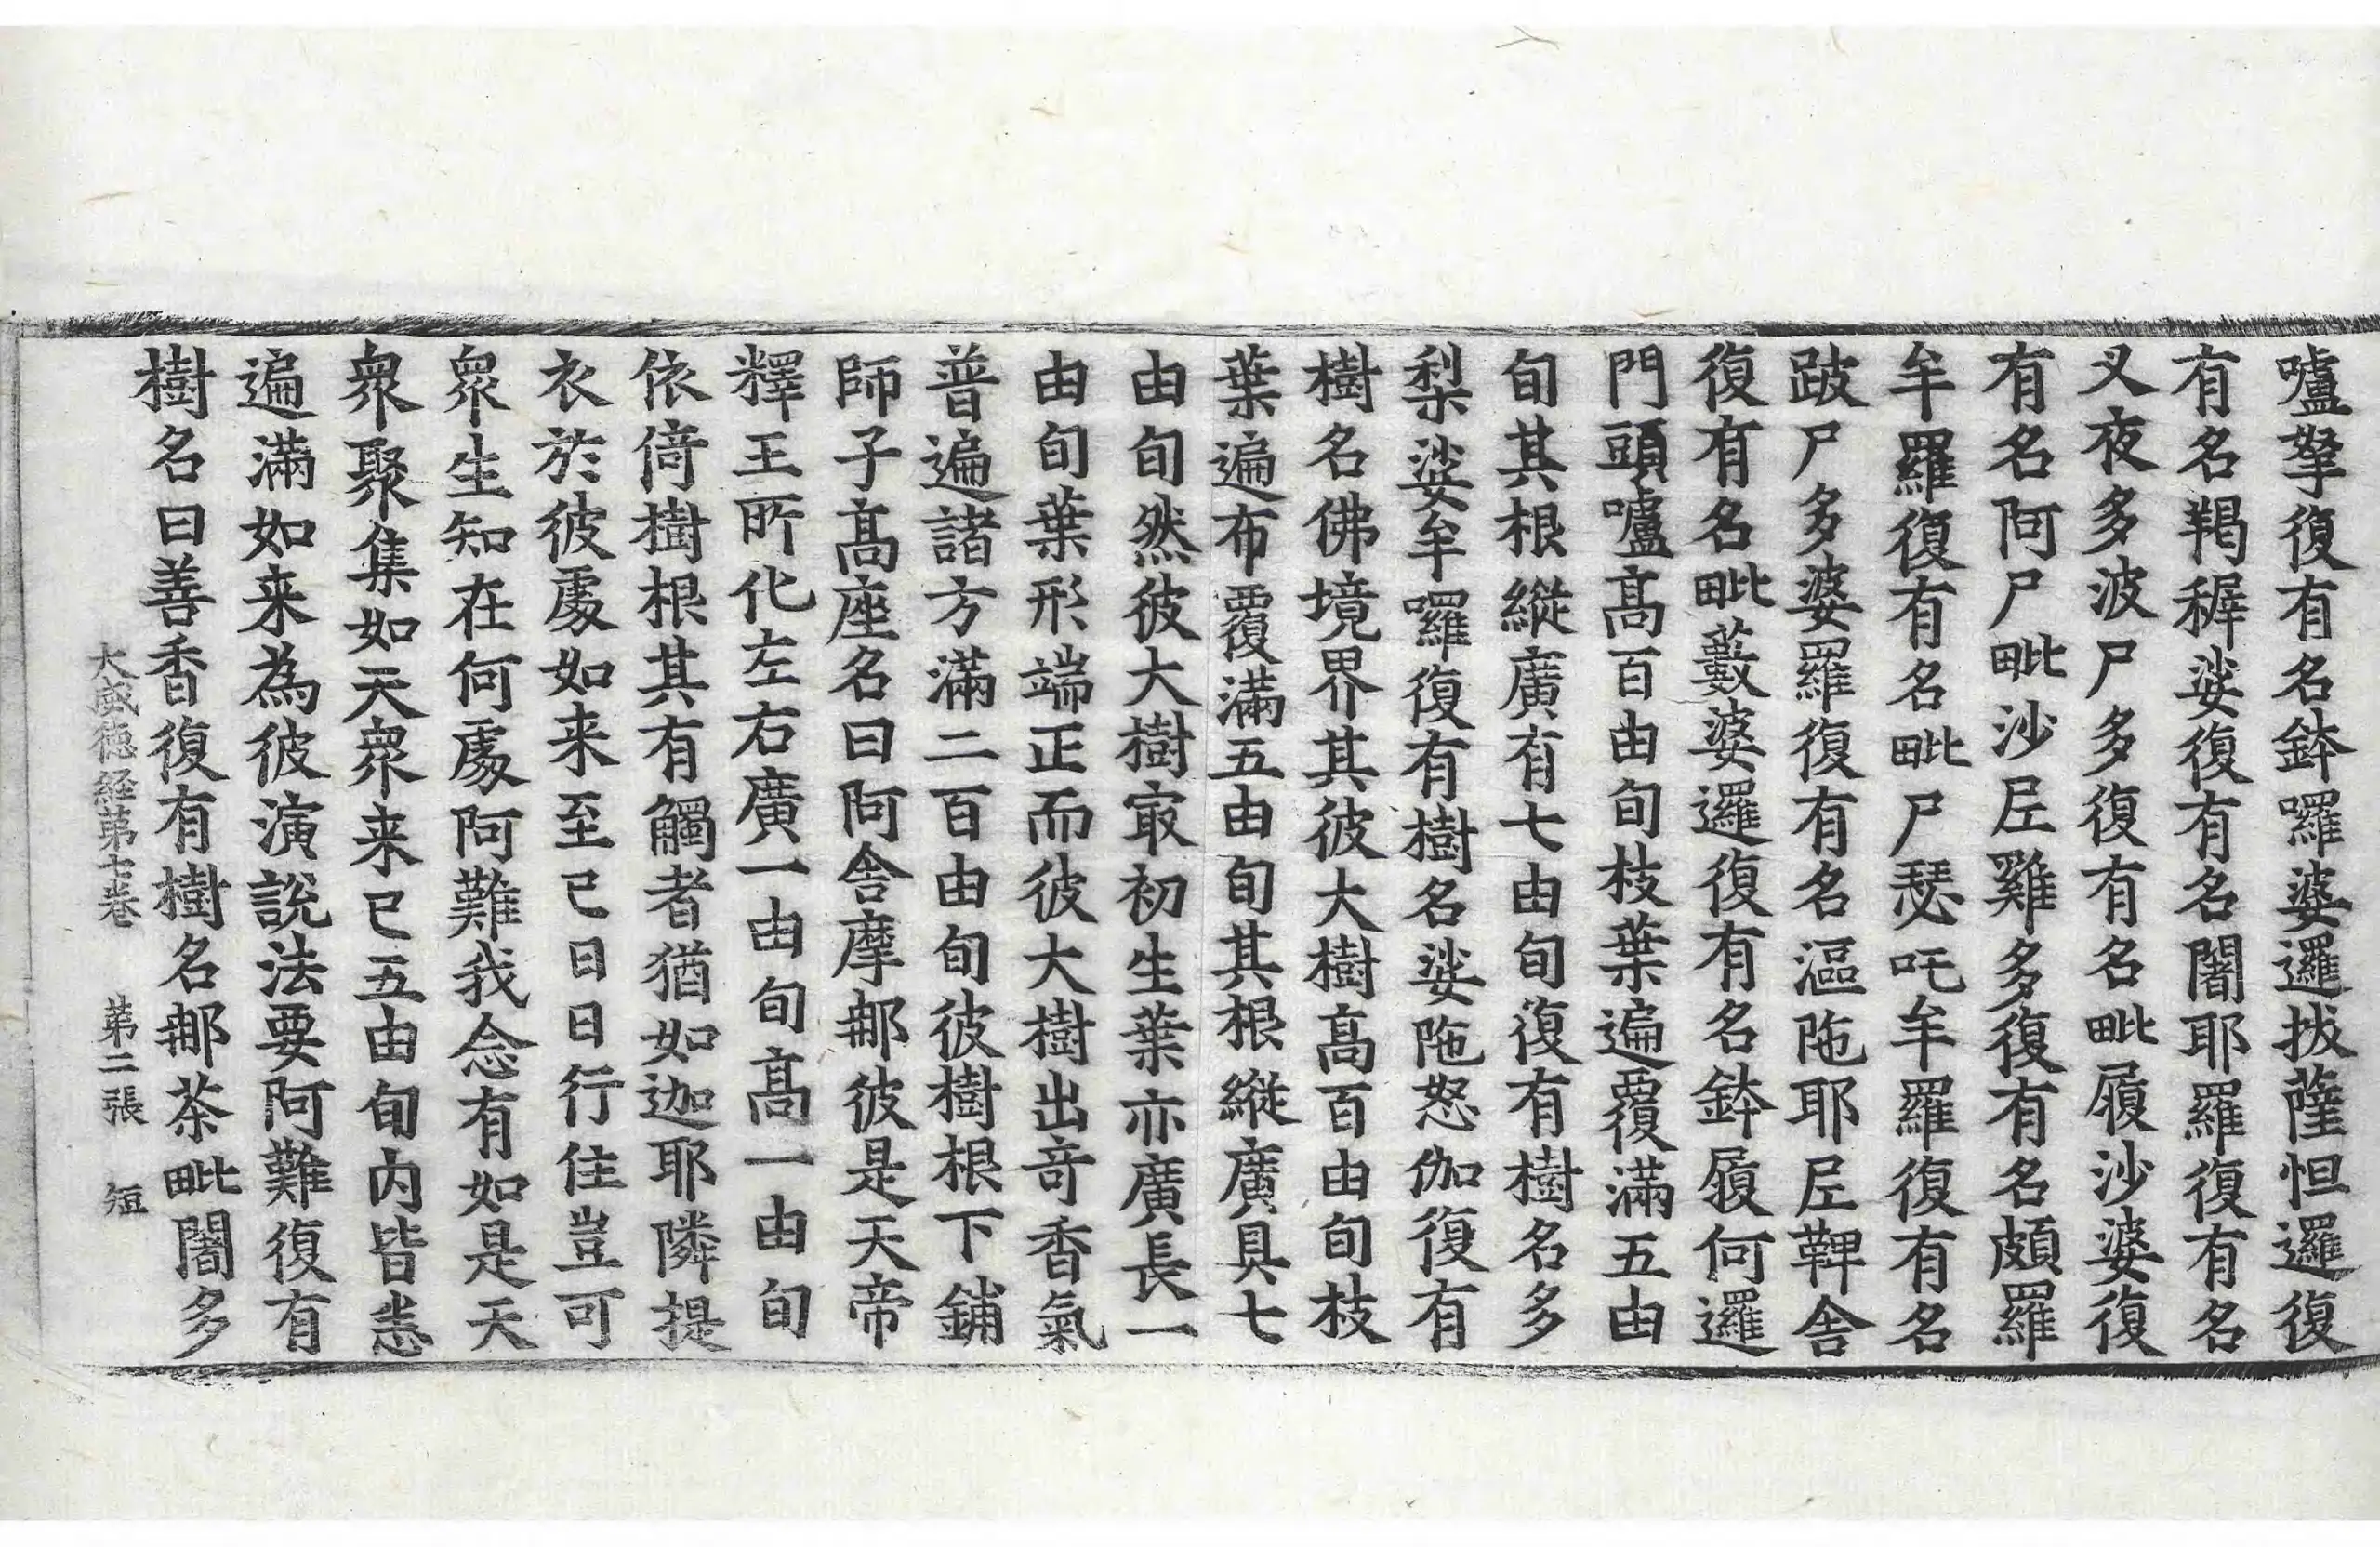 嚧拏復有名鉢囉婆邏拔薩怛邏復
有名羯稺娑復有名闍耶羅復有名
叉夜多波尸多復有名毗履沙婆復
有名阿尸毗沙𡰱雞多復有名頗羅
牟羅復有名毗尸瑟吒牟羅復有名
跛尸多婆羅復有名漚陁耶𡰱鞞舎
復有名毗藪婆邏復有名鉢履何邏
門頭嚧高百由旬枝葉遍覆滿五由
旬其根縱廣有七由旬復有樹名多
梨娑牟囉復有樹名娑陁怒伽復有
樹名佛境界其彼大樹高百由旬枝
葉遍布覆滿五由旬其根縱廣具七
由旬然彼大樹㝡初生葉亦廣長一
由旬葉形端正而彼大樹出竒香氣
普遍諸方滿二百由旬彼樹根下鋪
師子髙座名曰阿舎摩那彼是天帝
釋王所化左右廣一由旬髙一由旬
依倚樹根其有觸者猶如迦耶隣提
衣於彼處如来至已日日行住豈可
衆生知在何處阿難我念有如是天
衆聚集如天衆来已五由旬内皆悉
遍滿如来為彼演說法要阿難復有
樹名曰善香復有樹名那茶毗闍多
大威徳経第七卷 第二張 短